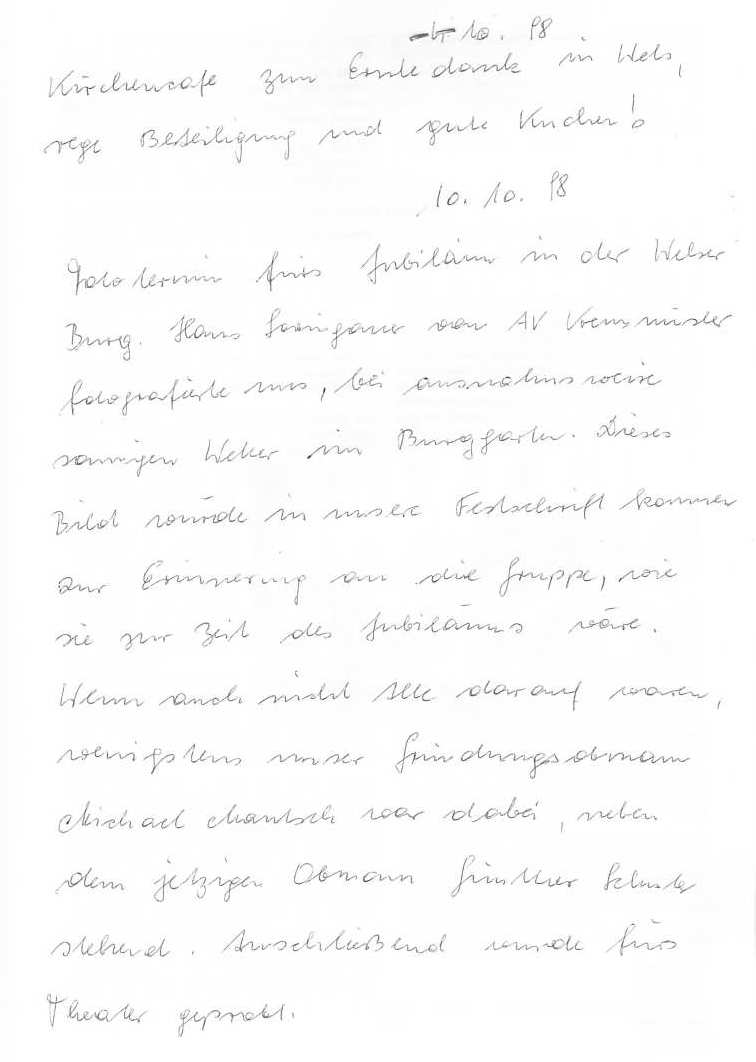 4. 10. 98
Kirchencafe zum Erntedank in Wels,
rege Beteiligung und gute Kuchen!
10. 10. 98
Fototermin fürs Jubiläum in der Welser
Burg. Hans von AV Kremsmünster
fotografierte uns, bei ausnahmsweise
sonnigen Wetter im Burggarten. Dieses
Bild würde in unsere Festschrift kommen
zur Erinnerung an die Gruppe, wie
sie zur Zeit des Jubiläums wäre.
Wenn auch nicht Alle darauf waren,
wenigstens unser Gründungsobmann
Michael Mantsch war dabei, neben
dem jetzigen Obmann Günther Schuster
stehend. Anschließend wurde fürs
Theater geprobt.